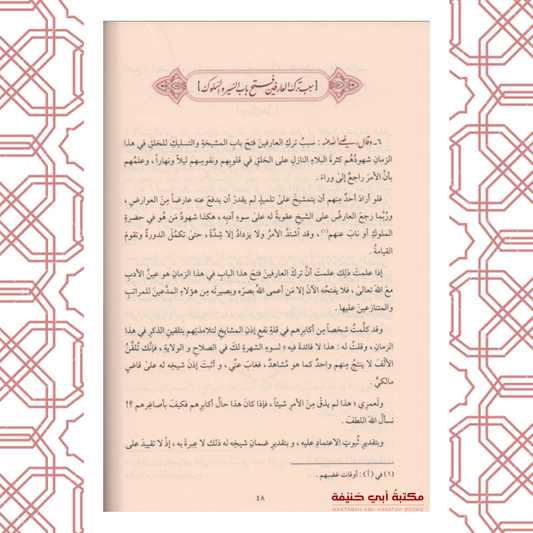 [سبب ترك العارفين فتح باب السير والسلوك]
٦ـ وقال رضي الله عنه : سببُ تركِ العارفينَ فتحَ بابِ المشيخةِ والتسليكِ للخلقِ في هذا
الزمانِ شهودُهُم كثرةَ البلاءِ النازلِ على الخلقِ في قلوبِهم ونفوسِهم ليلاً ونهاراً ، وعلمُهم
بأنَّ الأمرَ راجعٌ إلىٰ وراءَ .
فلو أرادَ أحدٌ منهم أن يتمشيخَ علىٰ تلميذٍ لم يقدرْ أن يدفعَ عنه عارضاً مِنَ العوارضِ ،
ورُبَّما رجعَ العارضُ على الشيخِ عقوبةً له علىٰ سوءِ أدبِهِ ، هكذا شهودُ مَن هُو في حضرةِ
الملوكِ أو نابَ عنهم(١) ، وقد اشتدَّ الأمرُ ولا يزدادُ إلا شِدَّةً ، حتىٰ تكمُلَ الدورةُ وتقومَ
القيامةُ .
إذا علمتَ ذلك علمتَ أنَّ تركَ العارفينَ فتحَ هذا البابِ في هذا الزمانِ هو عينُ الأدبِ
معَ اللهِ تعالىٰ ، فلا يفتحُه الآنَ إلا مَن أعمى اللهُ بصرَه وبصيرتَه مِن هؤلاءِ المدَّعينَ للمراتبِ
والمتنازعينَ عليها .
وقد كلَّمتُ شخصاً مِن أكابرِهم في قلةِ نفعِ إذنِ المشايخِ لتلامذتِهم بتلقينِ الذكرِ في هذا
الزمانِ ، وقلتُ له : هذا لا فائدةَ فيه لسوءِ الشهرةِ لكَ في الصلاحِ و الولايةِ ، فإنَّك تُلقِّنُ
الألفَ لا ينتجُ منهم واحدٌ كما هو مُشاهدٌ ، فغابَ عنِّي ، و أثبتَ إذنَ شيخِه له علىٰ قاضٍ
مالكيٍّ .
ولَعمرِي ؛ هذا لم يذقْ مِنَ الأمرِ شيئاً ، فإذا كانَ هذا حالُ أكابرِهم فكيفَ بأصاغرِهم ؟!
نسألُ اللهَ اللطفَ .
وبتقديرِ ثُبوتِ الاعتمادِ عليه ، و بتقديرِ ضمانِ شيخِه له ذلك لا عبرةَ به ، إذْ لا تقييدَ علىٰ
(١) في (أ) : أوقات غضبهم .
٤٨
مكتبة أبي حنيفة
MAKTABAH ABU HANIFAH BOOKS